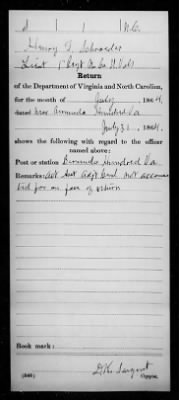 S | N.C.
Henry S. Schroeder
Lieut
Return
of the Department of Virginia and North Carolina,
for the month of July, 1864,
dated near Bermuda Hundred Va
July 31, 1864,
shows the following with regard to the officer
named above:
Post or station Bermuda Hundred Va.
Remarks: Act Asst Adjt Genl not accoun
ted for on face of return
Book mark:
(346)
D.K. Sargent
Copyist.